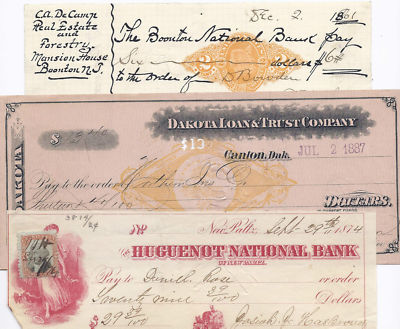 C.A. DeCamp
Real Estate
and
Forestry,
Mansion House
Boonton N.J.
Dec. 2. 1861
The Boonton National Bank Pay
Six dollars $ 6#
to the order of D Bowden
DAKOTA LOAN & TRUST COMPANY
$13
$
Canton, Dak. JUL 2 1887
DAKOTA
Pay to the order of
100
DOLLARS.
38 14/24
No New Paltz, Sept 29th 1874
HUGUENOT NATIONAL BANK
OF NEW PALTZ
Pay to Daniell Rose or order
Seventy nine 89/100 Dollars
$ 29 89/100 Josiah J. Hasbrouck